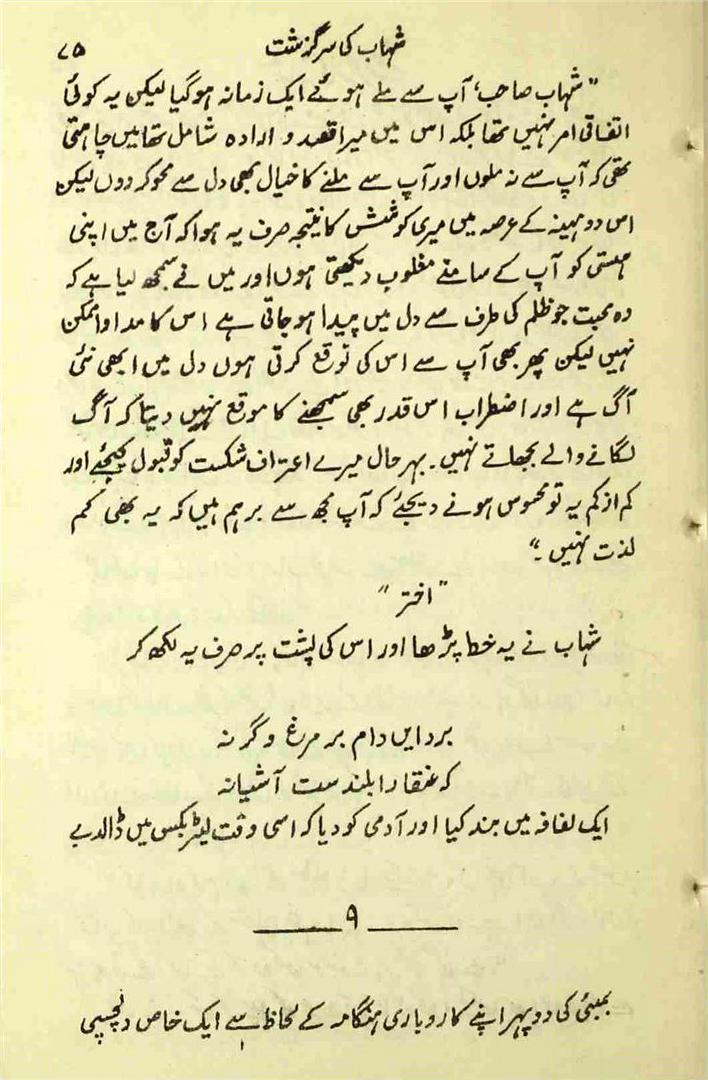 شہاب کی سرگزشت ۷۵
”شہاب صاحب، آپ سے ملے ہوئے ایک زمانہ ہوگیا لیکن یہ کوئی
اتفاقی امر نہیں تھا بلکہ اس میں میرا قصد و ارادہ شامل تھا میں چاہتی
تھی کہ آپ سے نہ ملوں اور آپ سے ملنے کا خیال بھی دل سے محو کر دوں لیکن
اس دو مہینہ کے عرصہ میں میری کوشش کا نتیجہ صرف یہ ہوا کہ آج میں اپنی
ہستی کو آپ کے سامنے مغلوب دیکھتی ہوں اور میں نے سمجھ لیا ہے کہ
وہ محبت جو ظلم کی طرف سے دل میں پیدا ہو جاتی ہے اس کا مداوا ممکن
نہیں لیکن پھر بھی آپ سے اس کی توقع کرتی ہوں دل میں ابھی نئی
آگ ہے اور اضطراب اس قدر بھی سمجھنے کا موقع نہیں دیتا کہ آگ
لگانے والے بجھاتے نہیں۔ بہرحال میرے اعتراف شکست کو قبول کیجئے اور
کم از کم یہ تو محسوس ہونے دیجئے کہ آپ مجھ سے برہم ہیں کہ یہ بھی کم
لذت نہیں۔“
”اختر“
شہاب نے یہ خط پڑھا اور اس کی پشت پر صرف یہ لکھ کر
برد ایں دام بر مرغ و گر نہ
کہ عنقا را بلند ست آشیانہ
ایک لفافہ میں بند کیا اور آدمی کو دیا کہ اسی وقت لیٹر بکس میں ڈالدے
۹
بمبئی کی دوپہر اپنے کاروباری ہنگامہ کے لحاظ سے ایک خاص دلچسپی